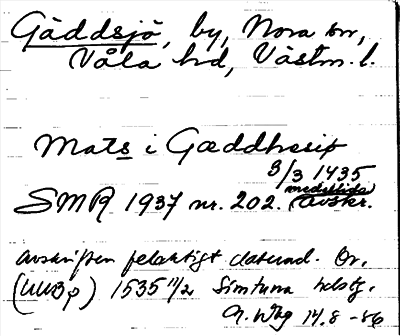 Gäddsjö, by, Nora sn,
Våla hd, Västm. l.
Mats i Gæddhesip
3/3 1435
SMR 1937 nr. 202. medeltida avskr.
Avskriften felaktigt daterad. Or.
(UUB p) 1535 11/2 Simtuna
14.8 -86